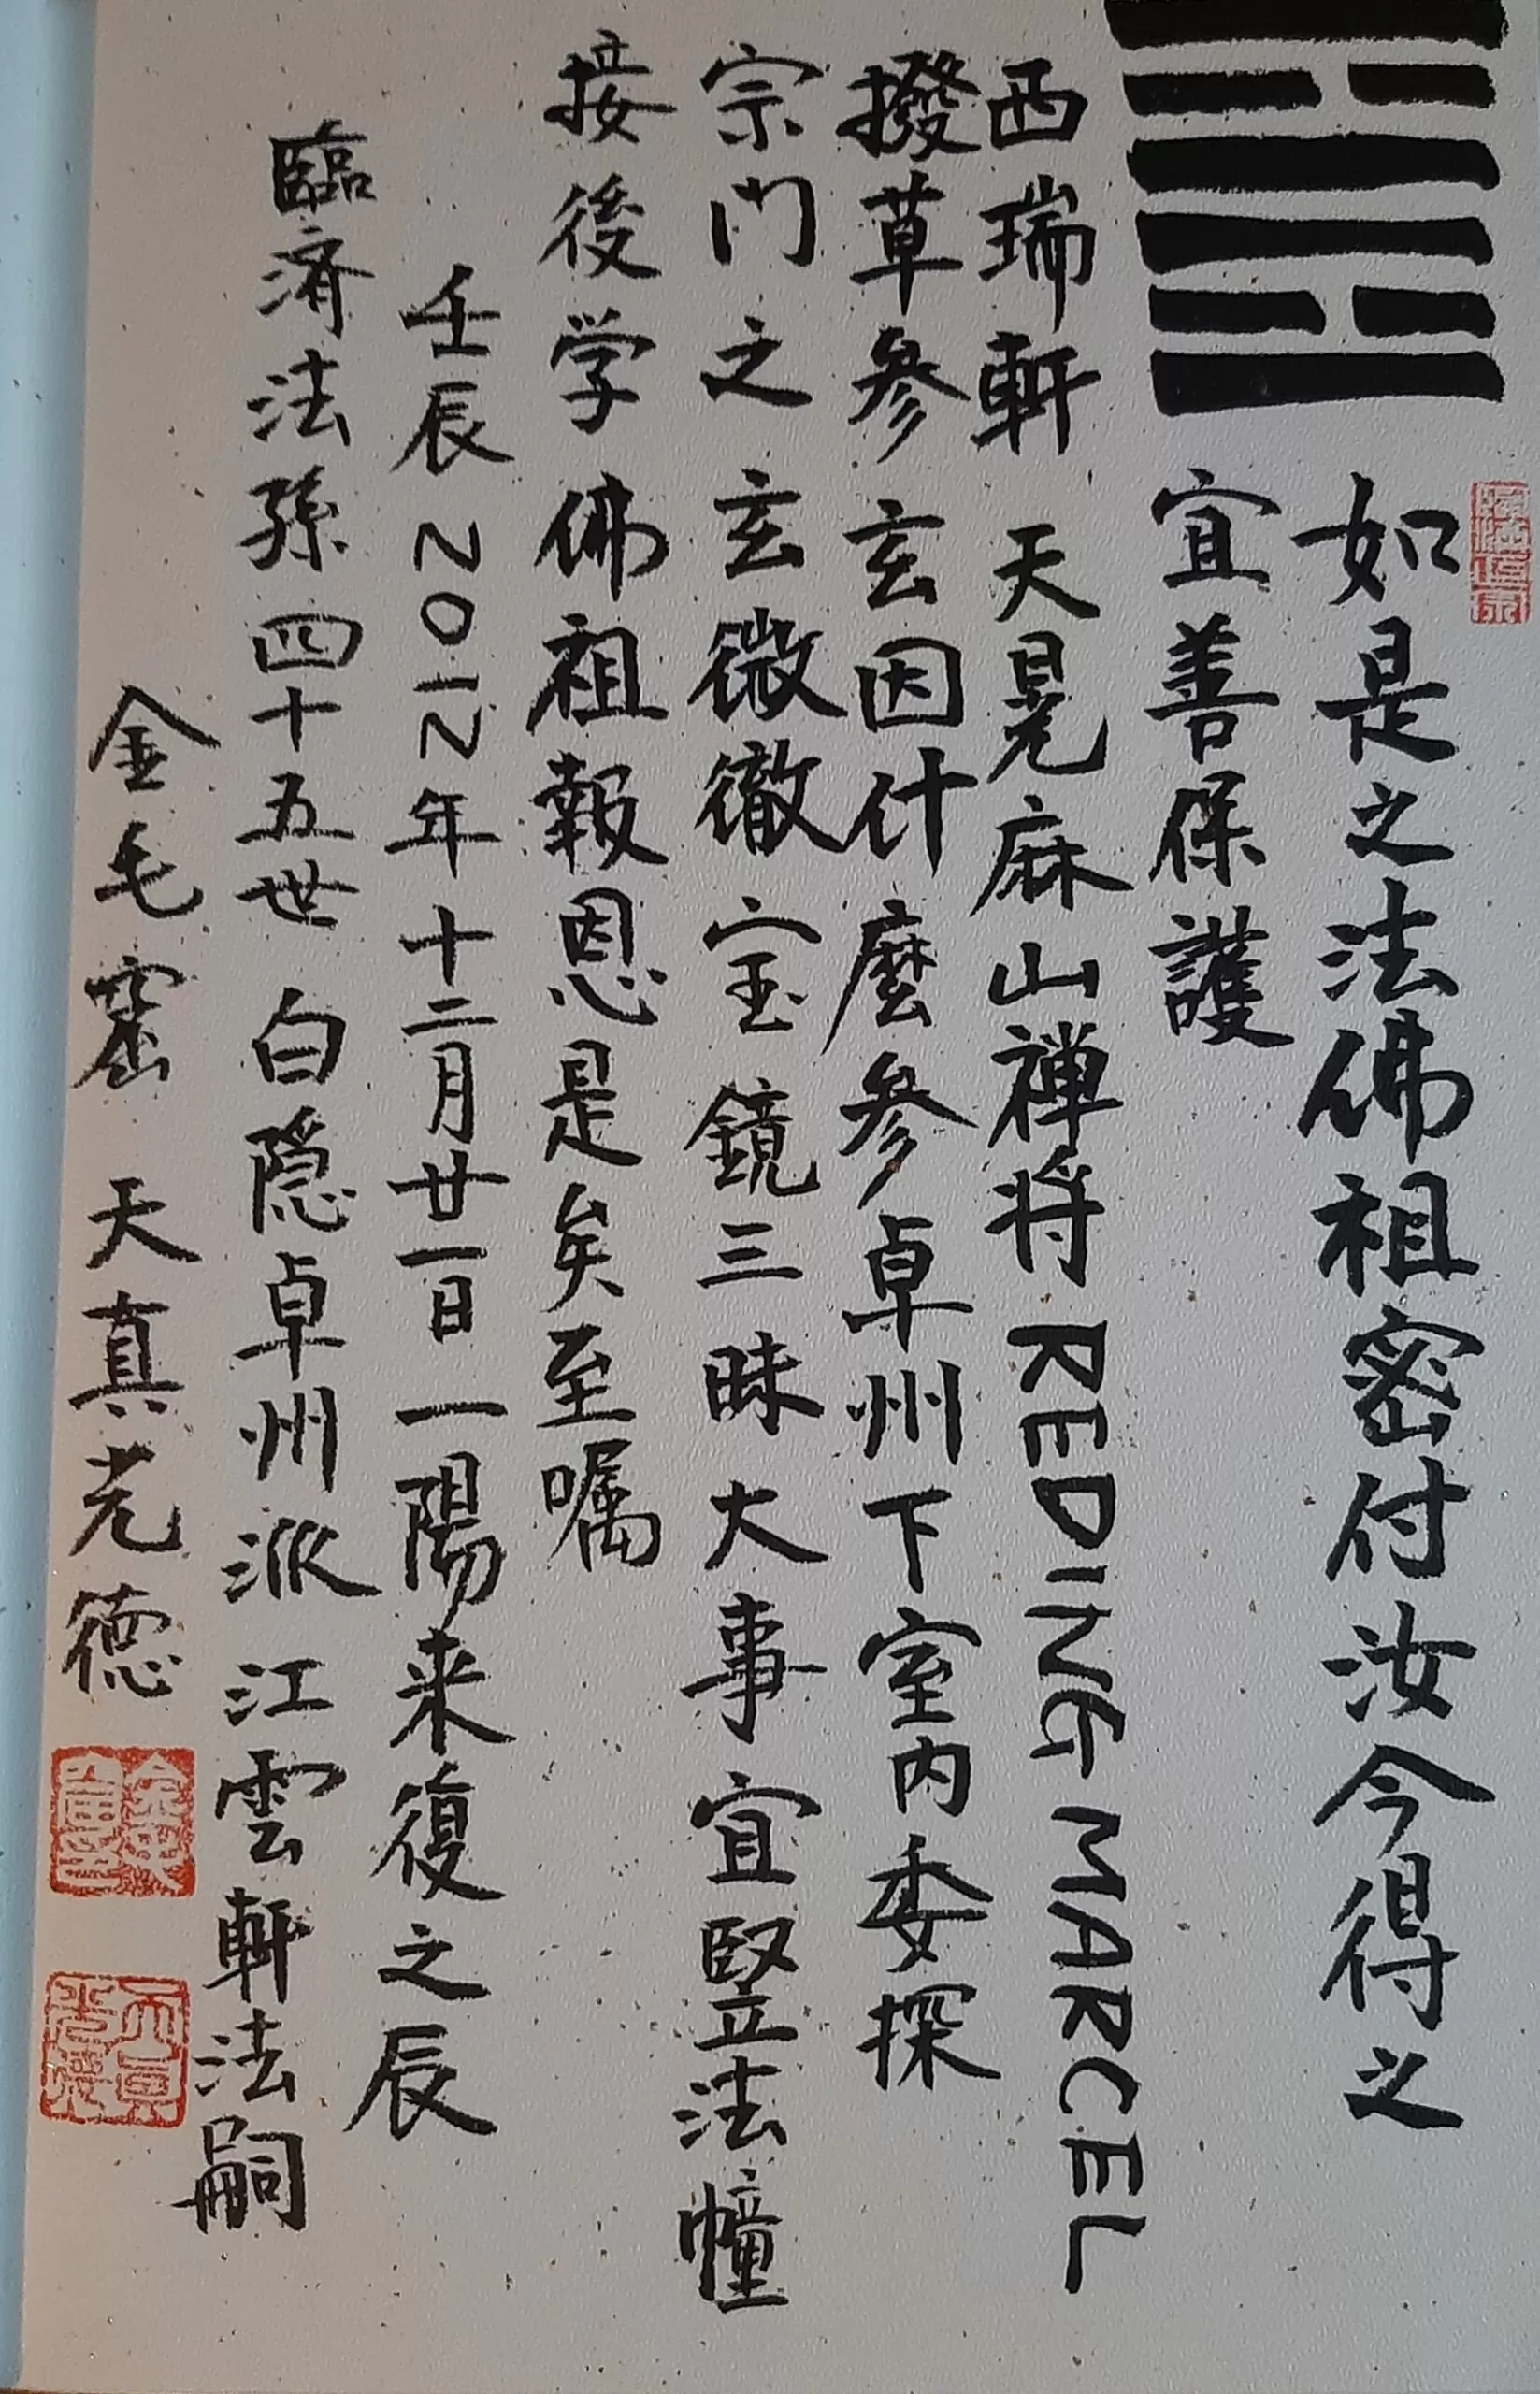 如是之法佛祖密付汝今得之
宜善保護
西瑞軒 天晃麻山禅将 REDING MARCEL
撥草参玄因什麼参卓州下室内委探
宗门之玄微徹宝鏡三昧大事宜竪法幢
接後学佛祖報恩是矣至嘱
壬辰 2012年十二月廿一日一陽来復之辰
臨済法孫四十五世 白隠卓州派 江雲軒法嗣
金毛窟 天真光徳
天真光徳